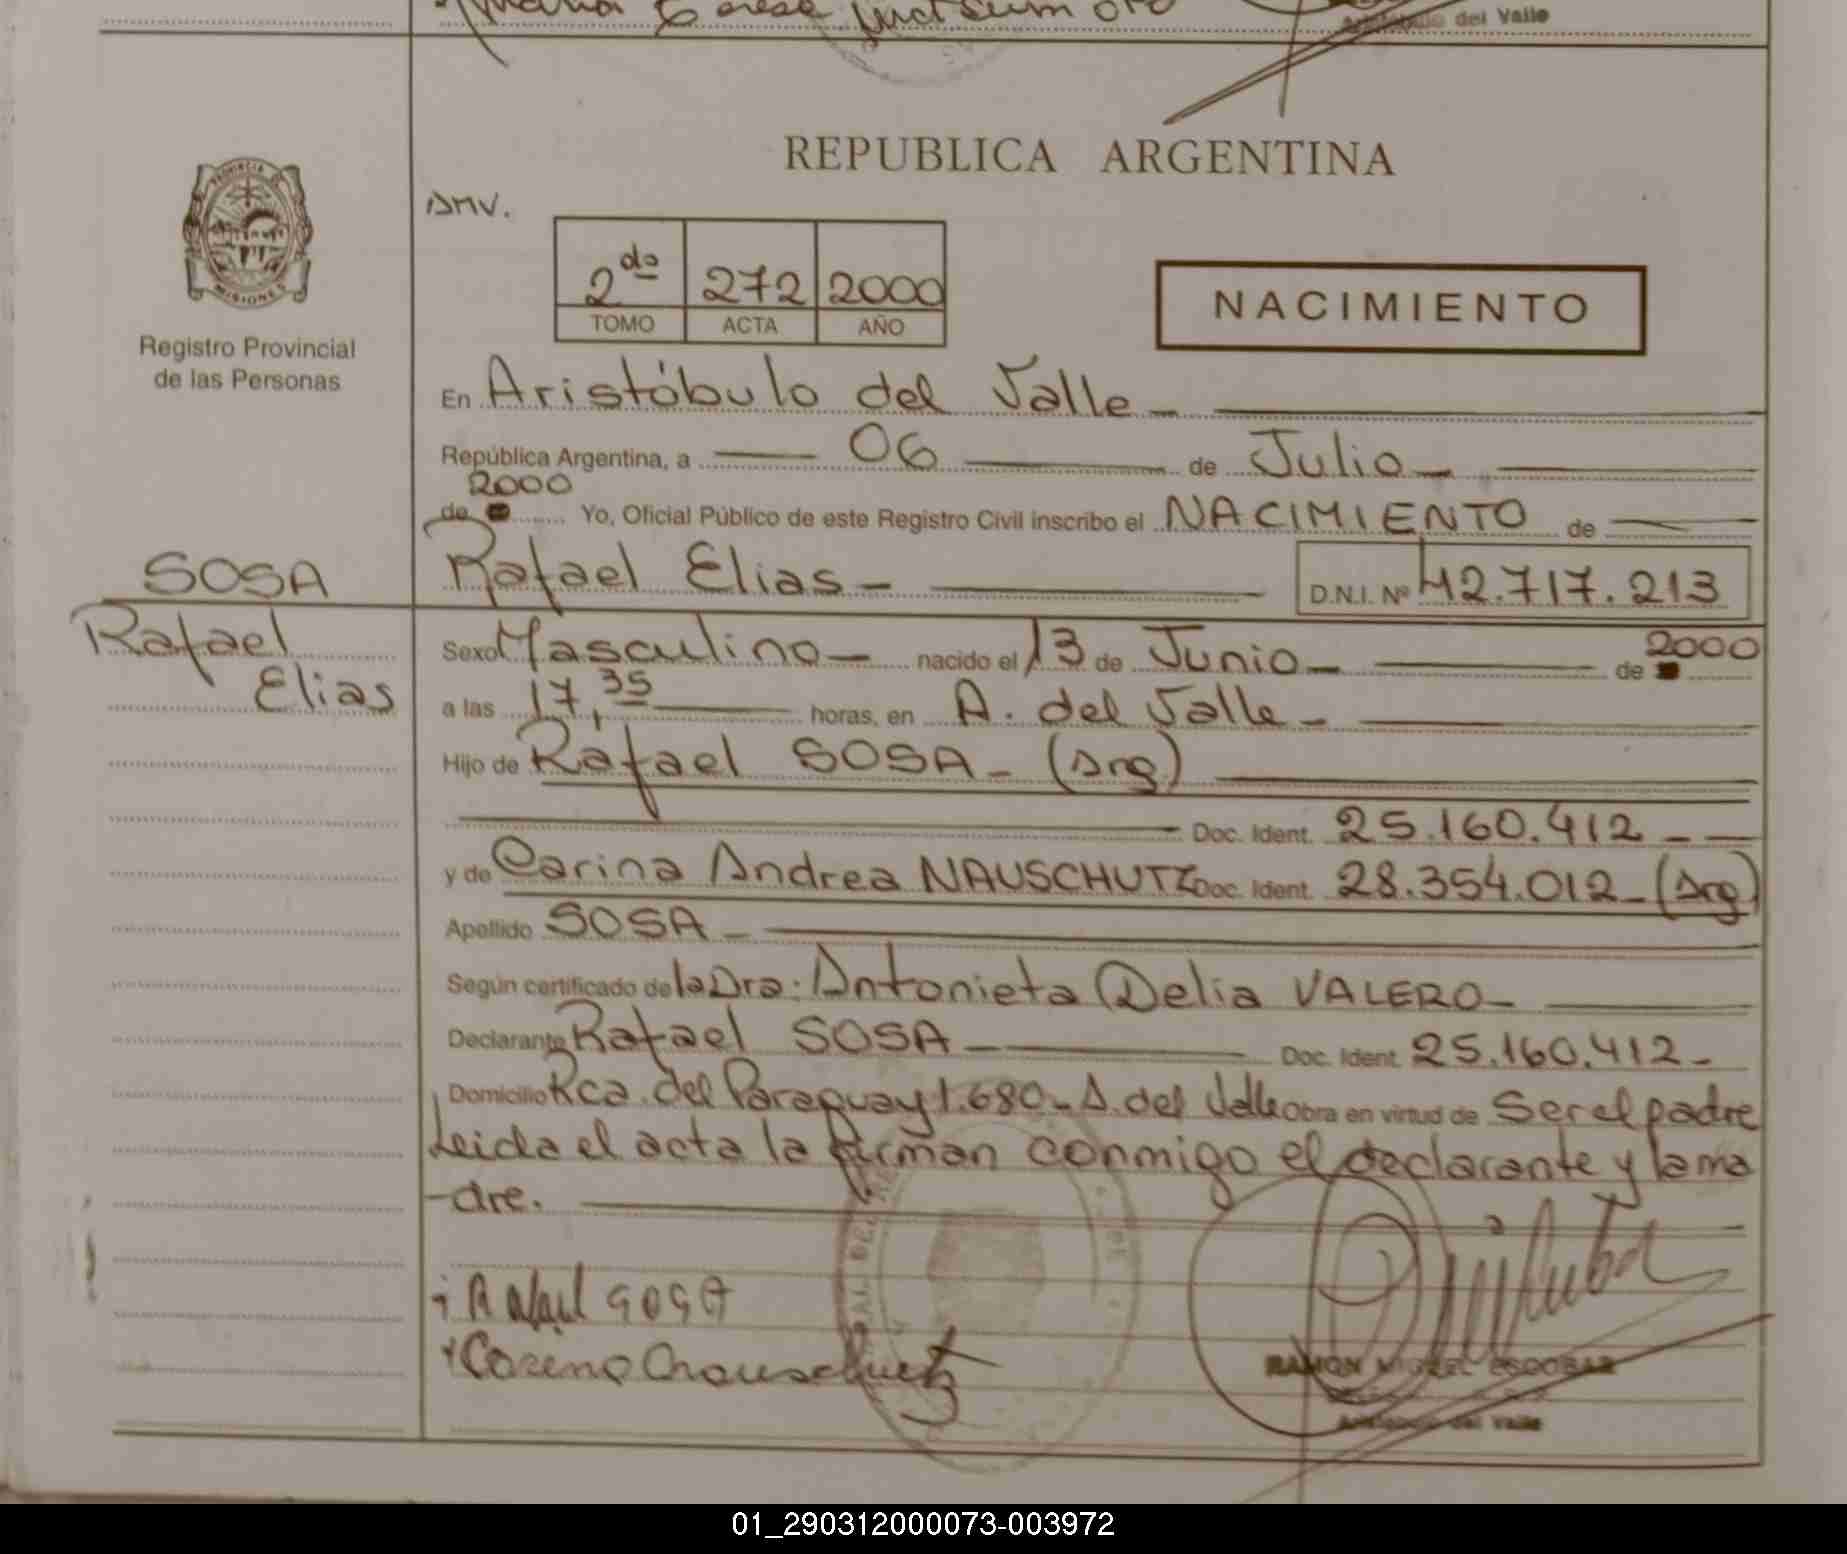 Aristóbulo del Valle
REPUBLICA ARGENTINA
PROVINCIA DE
MISIONES
Registro Provincial
de las Personas
AMV.
2do 272 2000
TOMO ACTA AÑO
NACIMIENTO
En Aristóbulo del Valle
República Argentina, a 06 de Julio
2000
de Yo, Oficial Público de este Registro Civil inscribo el NACIMIENTO de
SOSA
Rafael
Elias
Rafael Elias D.N.I. Nº 42.717.213
Sexo Masculino nacido el 13 de Junio de 2000
a las 17,35 horas, en A. del Valle
Hijo de Rafael SOSA (Arg)
Doc. Ident. 25.160.412
y de Carina Andrea NAUSCHUTZ Doc. Ident. 28.354.012 (Arg)
Apellido SOSA
Según certificado de la Dra: Antonieta Delia VALERO
Declarante Rafael SOSA Doc. Ident. 25.160.412
Domicilio Rca. del Paraguay 1.680 A. del Valle Obra en virtud de Ser el padre
Leida el acta la firman conmigo el declarante y la ma
-dre.
Rafael SOSA
RAMON MIGUEL ESCOBAR
Aristóbulo del Valle
01_290312000073-003972